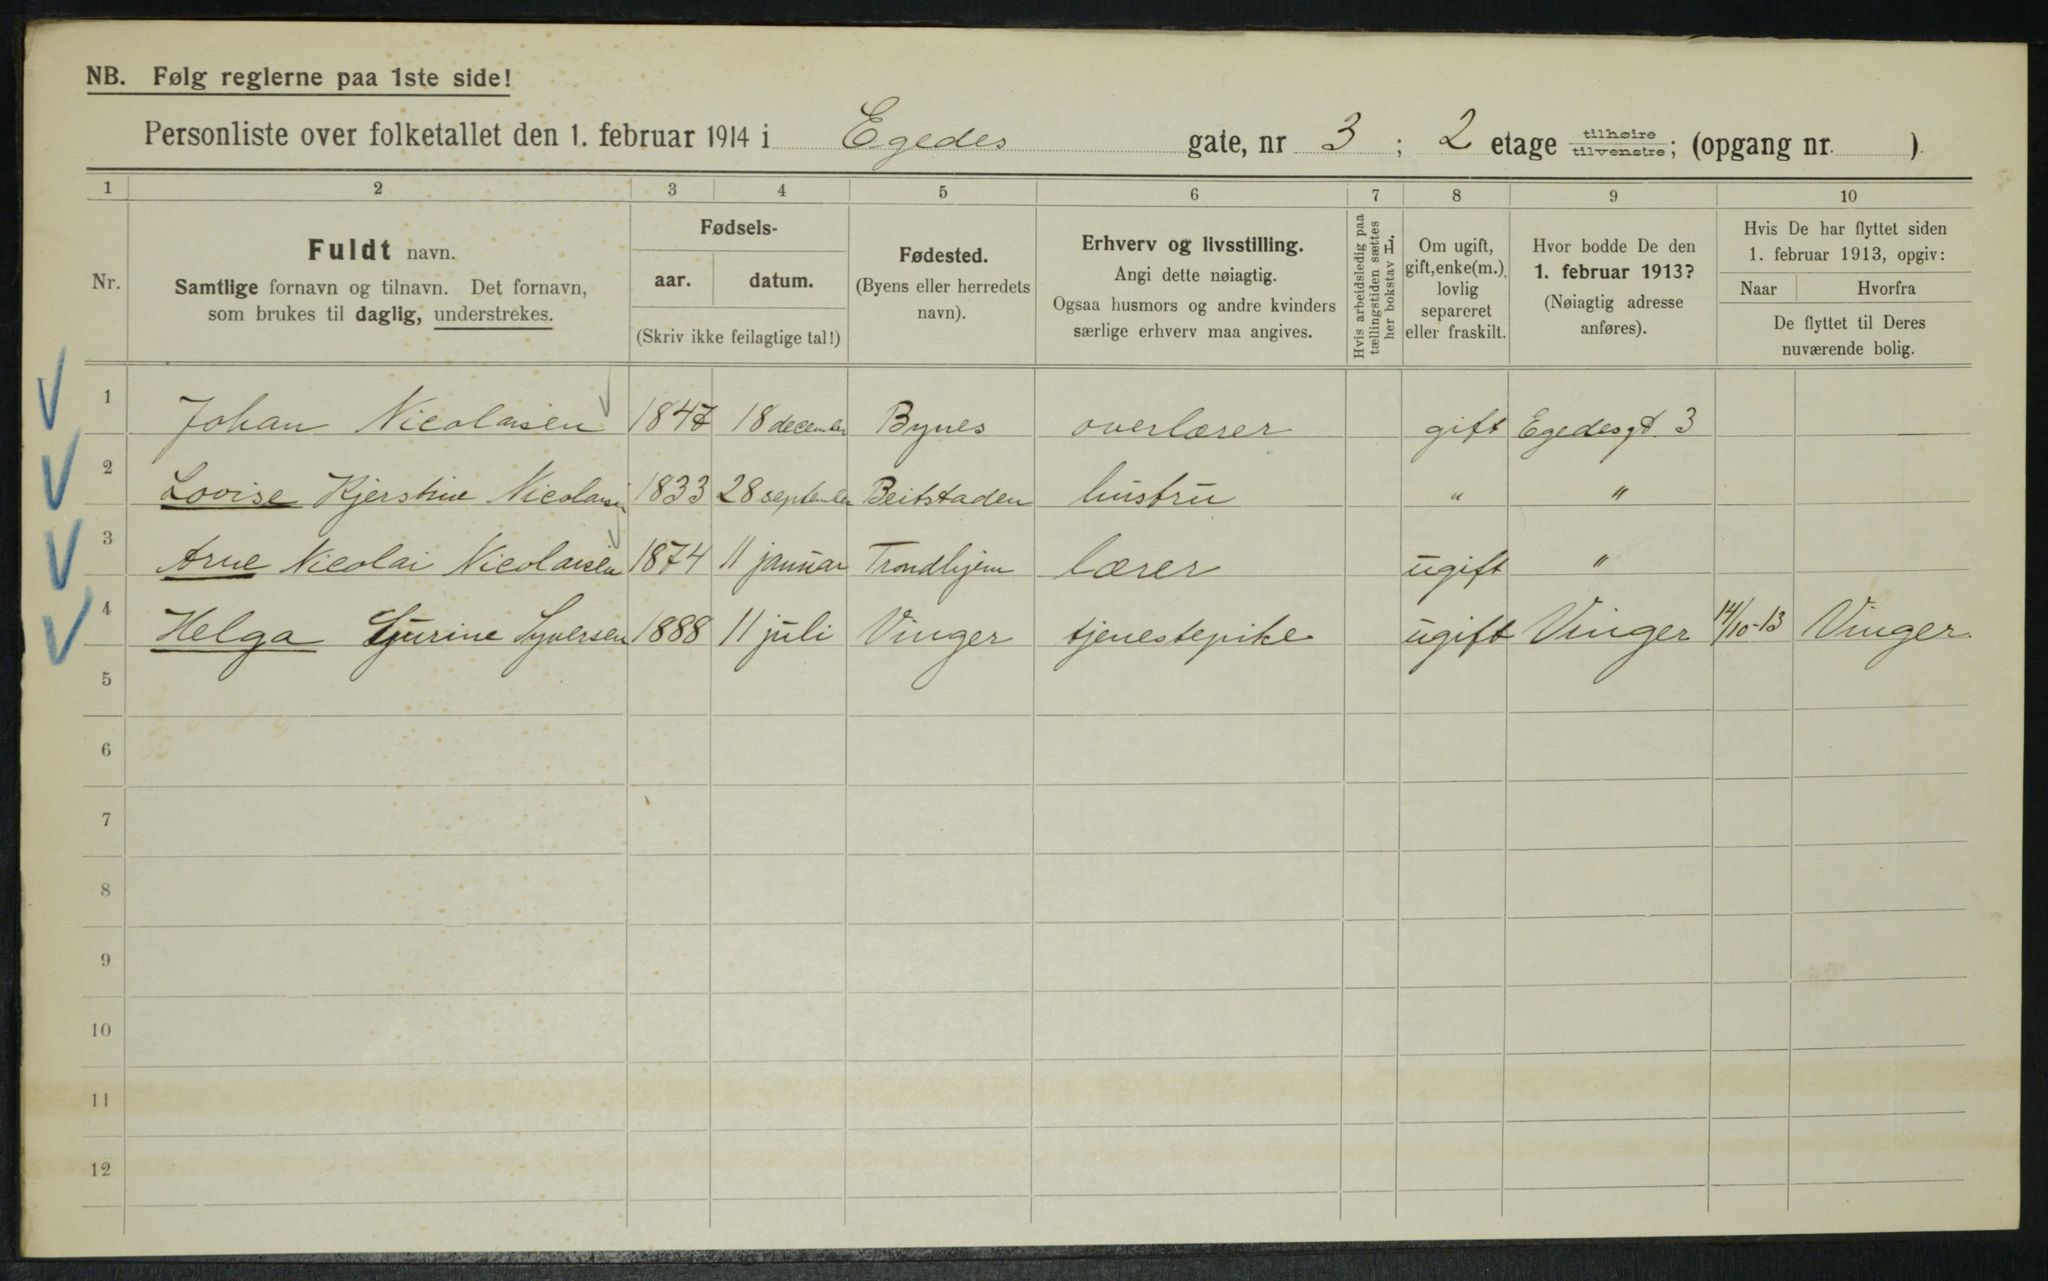 NB. Følg reglerne paa 1ste side!
Personliste over folketallet den 1. februar 1914 i Egedes gate, nr 3 ; 2 etage tilhøire tilvenstre; (opgang nr. ).
1 2 3 4 5 6 7 8 9 10
Nr.
Fuldt navn.
Samtlige fornavn og tilnavn. Det fornavn,
som brukes til daglig, understrekes.
Fødsels-
aar. datum.
(Skriv ikke feilagtige tal!)
Fødested.
(Byens eller herredets
navn).
Erhverv og livsstilling.
Angi dette nøiagtig.
Ogsaa husmors og andre kvinders
særlige erhverv maa angives.
Hvis arbeidsledig paa
tællingstiden sættes
her bokstav L.
Om ugift,
gift, enke(m.),
lovlig
separeret
eller fraskilt.
Hvor bodde De den
1. februar 1913?
(Nøiagtig adresse
anføres).
Hvis De har flyttet siden
1. februar 1913, opgiv:
Naar Hvorfra
De flyttet til Deres
nuværende bolig.
1 Johan Nicolaisen 1847 18 december Bynes overlærer gift Egedesgt. 3
2 Lovise Kjerstine Nicolaisen 1833 28 september Beitstaden hustru " "
3 Arne Nicolai Nicolaisen 1874 11 januar Trondhjem lærer ugift "
4 Helga Syversen 1888 11 juli Vinger tjenestepike ugift Vinger 14/10-13 Vinger.
5
6
7
8
9
10
11
12